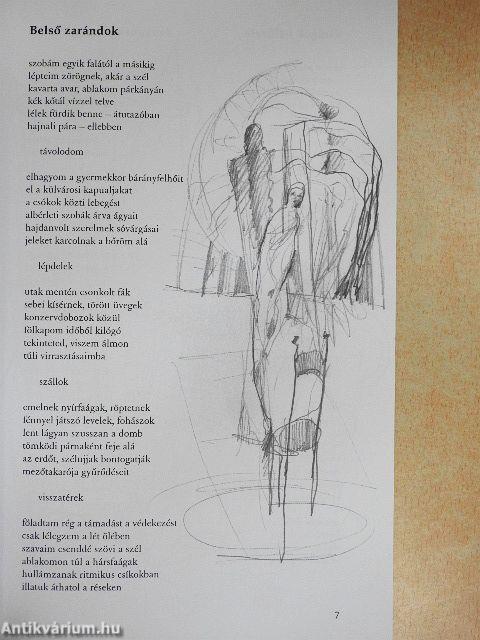 Belső zarándok
szobám egyik falától a másikig
lépteim zörögnek, akár a szél
kavarta avar, ablakom párkányán
kék kőtál vízzel telve
lélek fürdik benne – átutazóban
hajnali pára – ellebben
távolodom
elhagyom a gyermekkor bárányfelhőit
el a külvárosi kapualjakat
a csókok közti lebegést
albérleti szobák árva ágyait
hajdanvolt szerelmek sóvárgásai
jeleket karcolnak a bőröm alá
lépdelek
utak mentén csonkolt fák
sebei kísérnek, törött üvegek
konzervdobozok közül
fölkapom időből kilógó
tekinteted, viszem álmon
túli virrasztásaimba
szállok
emelnek nyírfaágak, röptetnek
fénnyel játszó levelek, fohászok
lent lágyan szusszan a domb
tömködi párnaként feje alá
az erdőt, szélujjak bontogatják
mezőtakarója gyűrődéseit
visszatérek
föladtam rég a támadást a védekezést
csak lélegzem a lét ölében
szavaim csenddé szövi a szél
ablakomon túl a hársfaágak
hullámzanak ritmikus csíkokban
illatuk áthatol a réseken
7
Antikvárium.hu